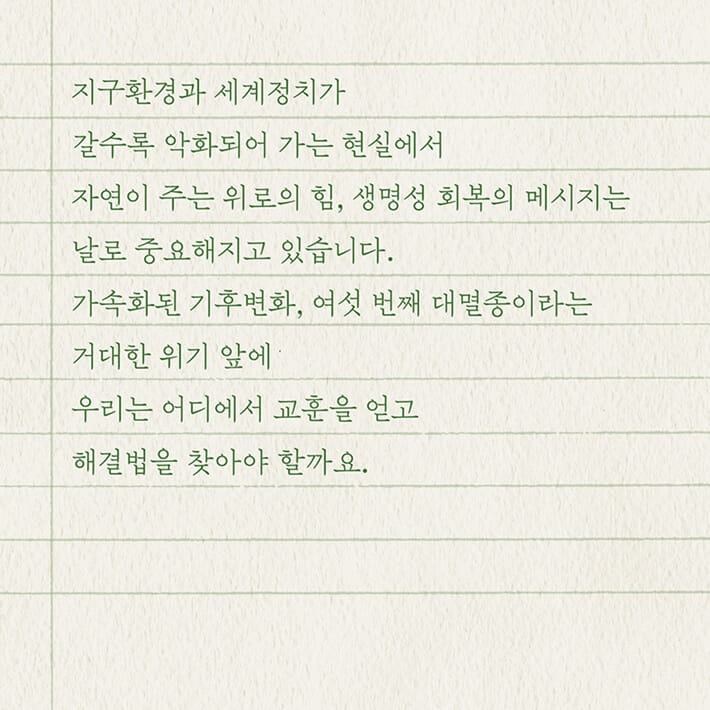 지구환경과 세계정치가
갈수록 악화되어 가는 현실에서
자연이 주는 위로의 힘, 생명성 회복의 메시지는
날로 중요해지고 있습니다.
가속화된 기후변화, 여섯 번째 대멸종이라는
거대한 위기 앞에
우리는 어디에서 교훈을 얻고
해결법을 찾아야 할까요.